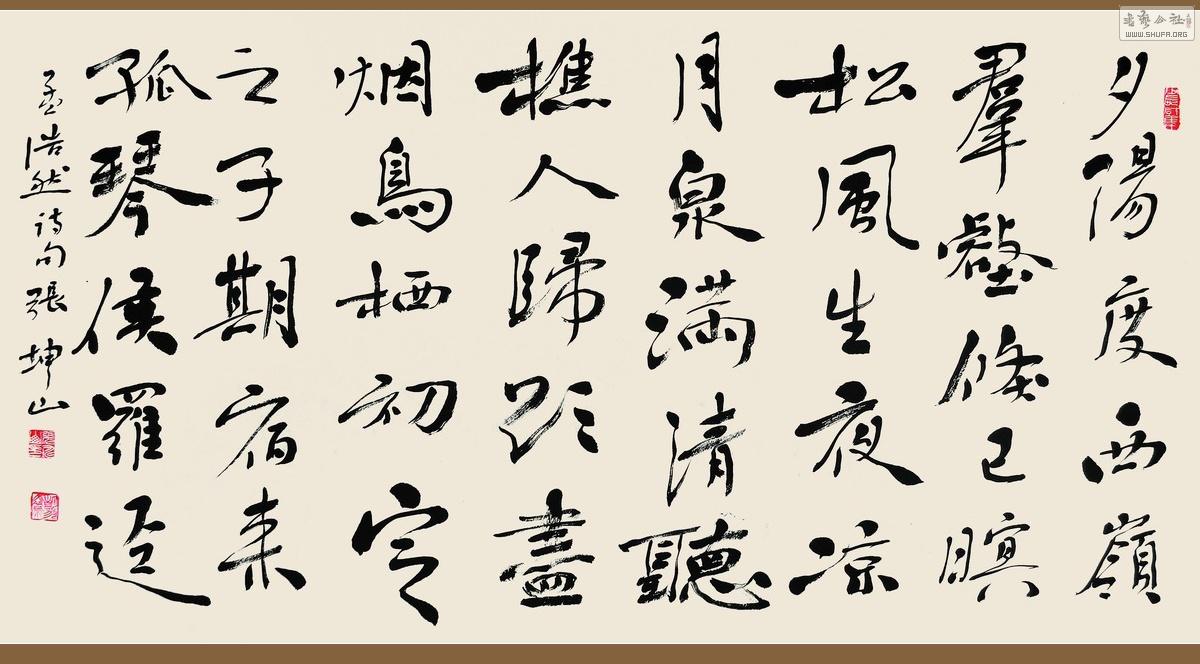 夕陽度西嶺
羣壑倏已暝
松風生夜凉
月泉满清聽
樵人歸欲盡
烟鳥栖初定
之子期宿来
孤琴候羅迳
孟浩然诗句張坤山
书艺公社
WWW.SHUFA.ORG